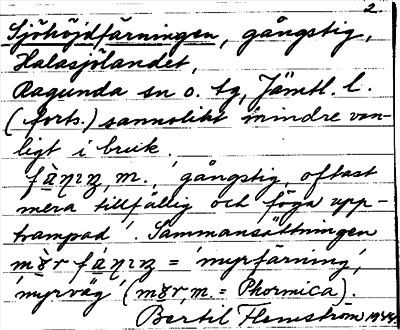 2.
Sjöhöjdfärningen, gångstig,
Halasjölandet,
Ragunda sn o. tg, Jämtl. l.
(forts.) sannolikt mindre van-
ligt i bruk.
m. 'gångstig, oftast
mera tillfällig och föga upp-
trampad'. Sammansättningen
= 'myrfärning',
'myrväg' (m. = Phormica).
Bertil Flemström 1944.